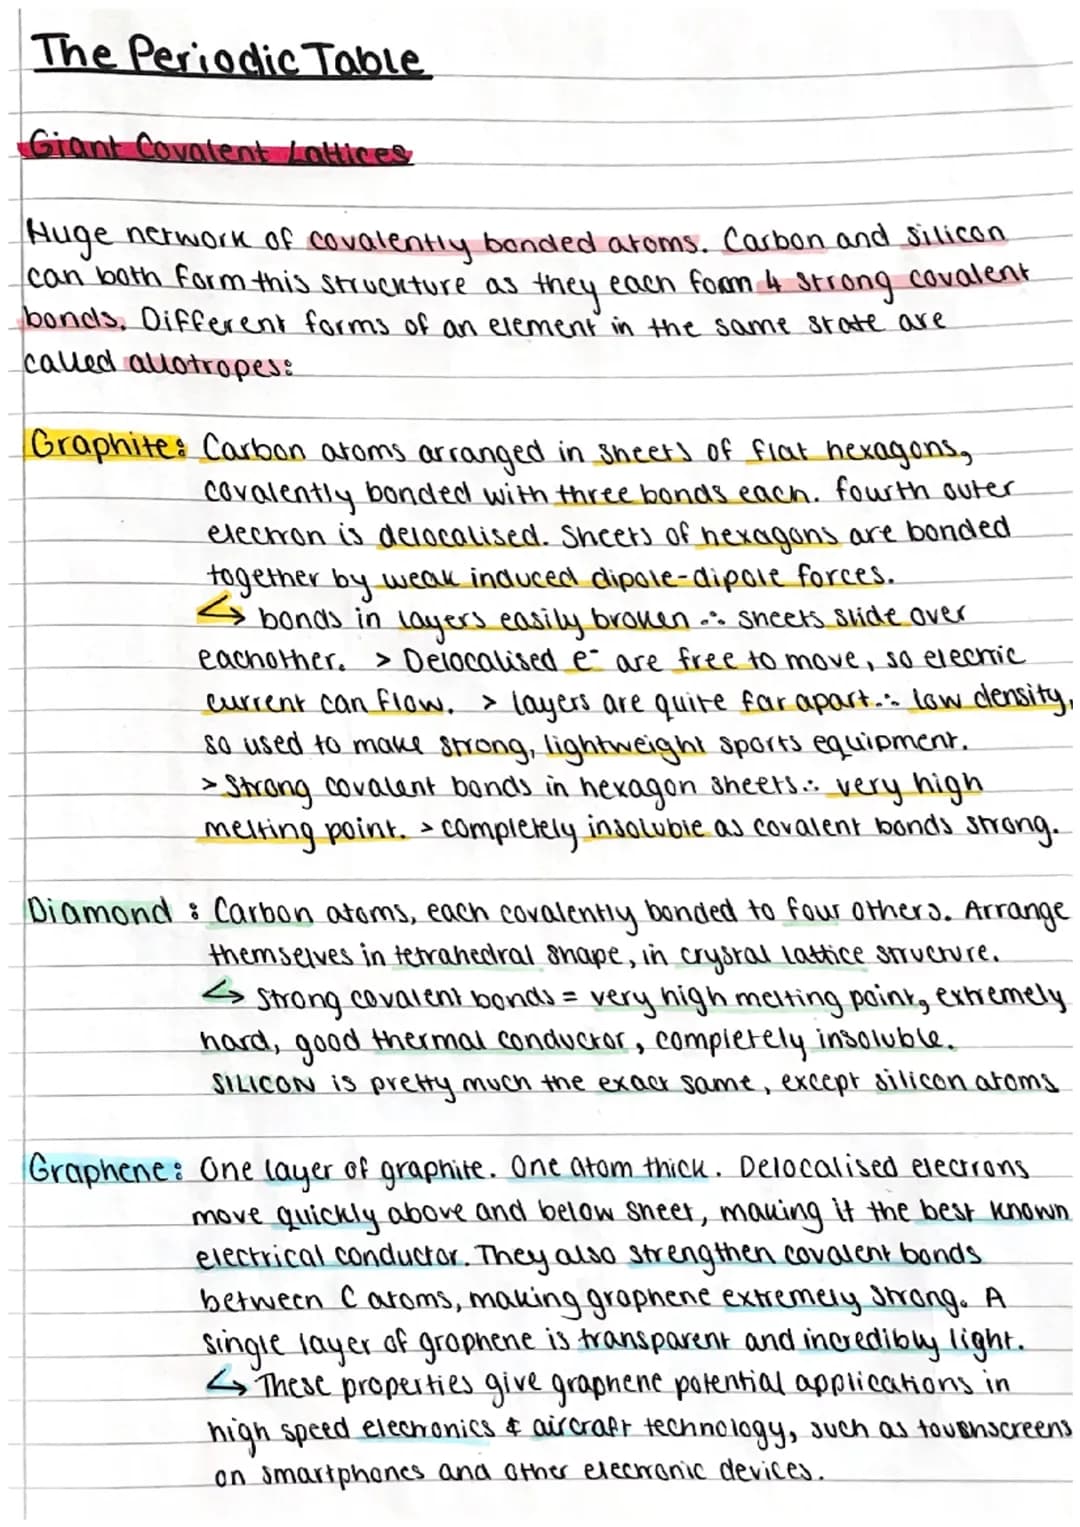 The Periodic Table
Giant Covalent Lattices
Huge network of covalently bonded atoms. Carbon and silicon
can both form this struckture as they each form 4 strong covalent
bonds. Different forms of an element in the same state are
called allotropes:
Graphite: Carbon atoms arranged in sheets of flat hexagons,
covalently bonded with three bonds each. fourth outer
electron is delocalised. Sheets of hexagons are bonded
together by weak induced dipole-dipole forces.
↳ bonds in layers easily broken ∴ sheets slide over
eachother. > Delocalised e⁻ are free to move, so electric
current can flow. > layers are quite far apart ∴ low density,
so used to make strong, lightweight sports equipment.
> Strong covalent bonds in hexagon sheets ∴ very high
melting point. > completely insoluble as covalent bonds strong.
Diamond: Carbon atoms, each covalently bonded to four others. Arrange
themselves in tetrahedral shape, in crystal lattice structure.
↳ Strong covalent bonds = very high melting point, extremely
hard, good thermal conductor, completely insoluble.
SILICON is pretty much the exact same, except silicon atoms
Graphene: One layer of graphite. One atom thick. Delocalised electrons
move quickly above and below sheet, making it the best known
electrical conductor. They also strengthen covalent bonds
between C atoms, making graphene extremely strong. A
single layer of graphene is transparent and incredibly light.
↳ These properties give graphene potential applications in
high speed electronics & aircraft technology, such as touchscreens
on smartphones and other electronic devices.